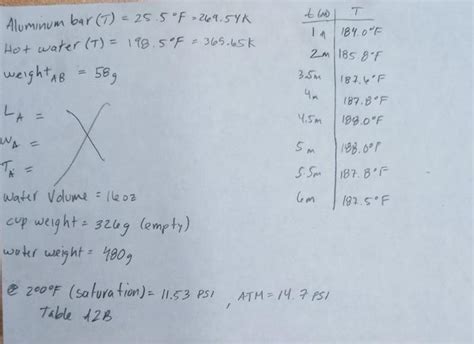 Aluminum bar (T) = 25.5°F = 269.54K
Hot water (T) = 198.5°F = 365.65K
weight AB = 58g
LA =
WA =
TA =
water Volume = 16oz
cup weight = 326g (empty)
water weight = 480g
@ 200°F (saturation) = 11.53 PSI, ATM = 14.7 PSI
Table A2B
t (m) T
1m 189.0°F
2m 185.8°F
3.5m 187.6°F
4m 187.8°F
4.5m 188.0°F
5m 188.0°F
5.5m 187.8°F
6m 187.5°F